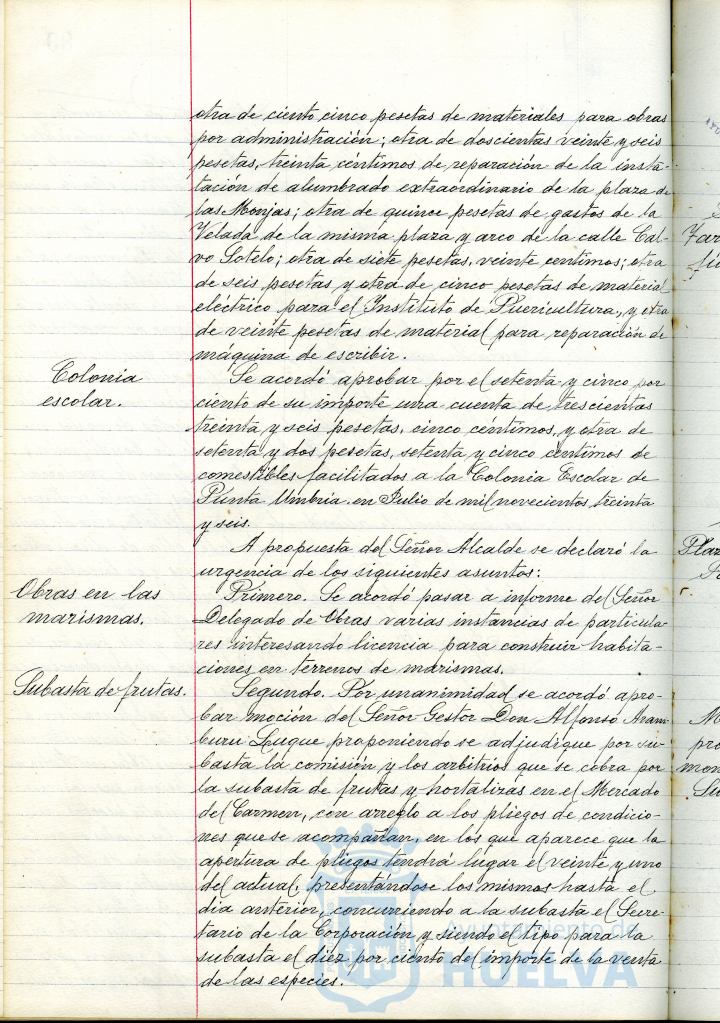 otra de ciento cinco pesetas de materiales para obras
por administración; otra de doscientas veinte y seis
pesetas, treinta céntimos de reparación de la insta-
lación de alumbrado extraordinario de la plaza de
las Monjas; otra de quince pesetas de gastos de la
Velada de la misma plaza y arco de la calle Cal-
vo Sotelo; otra de siete pesetas, veinte centimos; otra
de seis pesetas y otra de cinco pesetas de material
eléctrico para el Instituto de Puericultura, y otra
de veinte pesetas de material para reparación de
máquina de escribir.
Colonia
escolar.
Se acordó aprobar por el setenta y cinco por
ciento de su importe una cuenta de trescientas
treinta y seis pesetas, cinco céntimos, y otra de
setenta y dos pesetas, setenta y cinco céntimos de
comestibles facilitados a la Colonia Escolar de
Punta Umbría en Julio de mil novecientos treinta
y seis.
A propuesta del Señor Alcalde se declaró la
urgencia de los siguientes asuntos:
Obras en las
marismas.
Primero. Se acordó pasar a informe del Señor
Delegado de Obras varias instancias de particula-
res interesando licencia para construir habita-
ciones en terrenos de marismas.
Subasta de frutas.
Segundo. Por unanimidad se acordó apro-
bar moción del Señor Gestor Don Alfonso Aram-
buru Luque proponiendo se adjudique por su-
basta la comisión y los arbitrios que se cobra por
la subasta de frutas y hortalizas en el Mercado
del Carmen, con arreglo a los pliegos de condicio-
nes que se acompañan, en los que aparece que la
apertura de pliegos tendrá lugar el veinte y uno
del actual, presentándose los mismos hasta el
dia anterior, concurriendo a la subasta el Secre-
tario de la Corporación y siendo el tipo para la
subasta el diez por ciento del importe de la venta
de las especies.
Ayuntamiento de
HUELVA